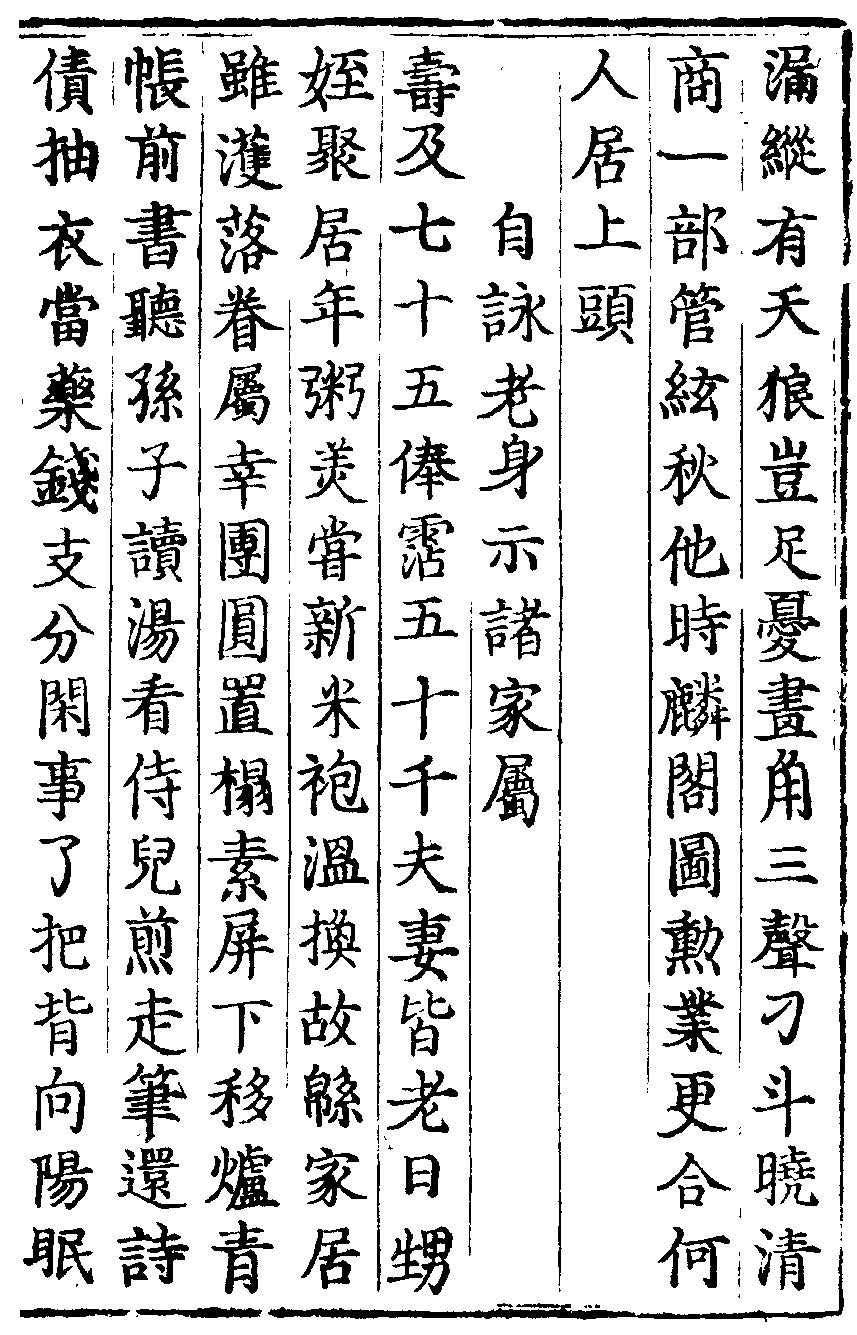 漏縱有天狼豈足憂畫角三聲刁斗曉清
商一部管絃秋他時麟閣圖勲業更合何
人居上頭
自詠老身示諸家屬
壽及七十五俸霑五十千夫妻皆老日甥
姪聚居年粥美嘗新米袍溫換故緜家居
雖濩落眷屬幸團圓置榻素屏下移爐青
帳前書聽孫子讀湯看侍兒煎走筆還詩
債抽衣當藥錢支分閑事了把背向陽眠